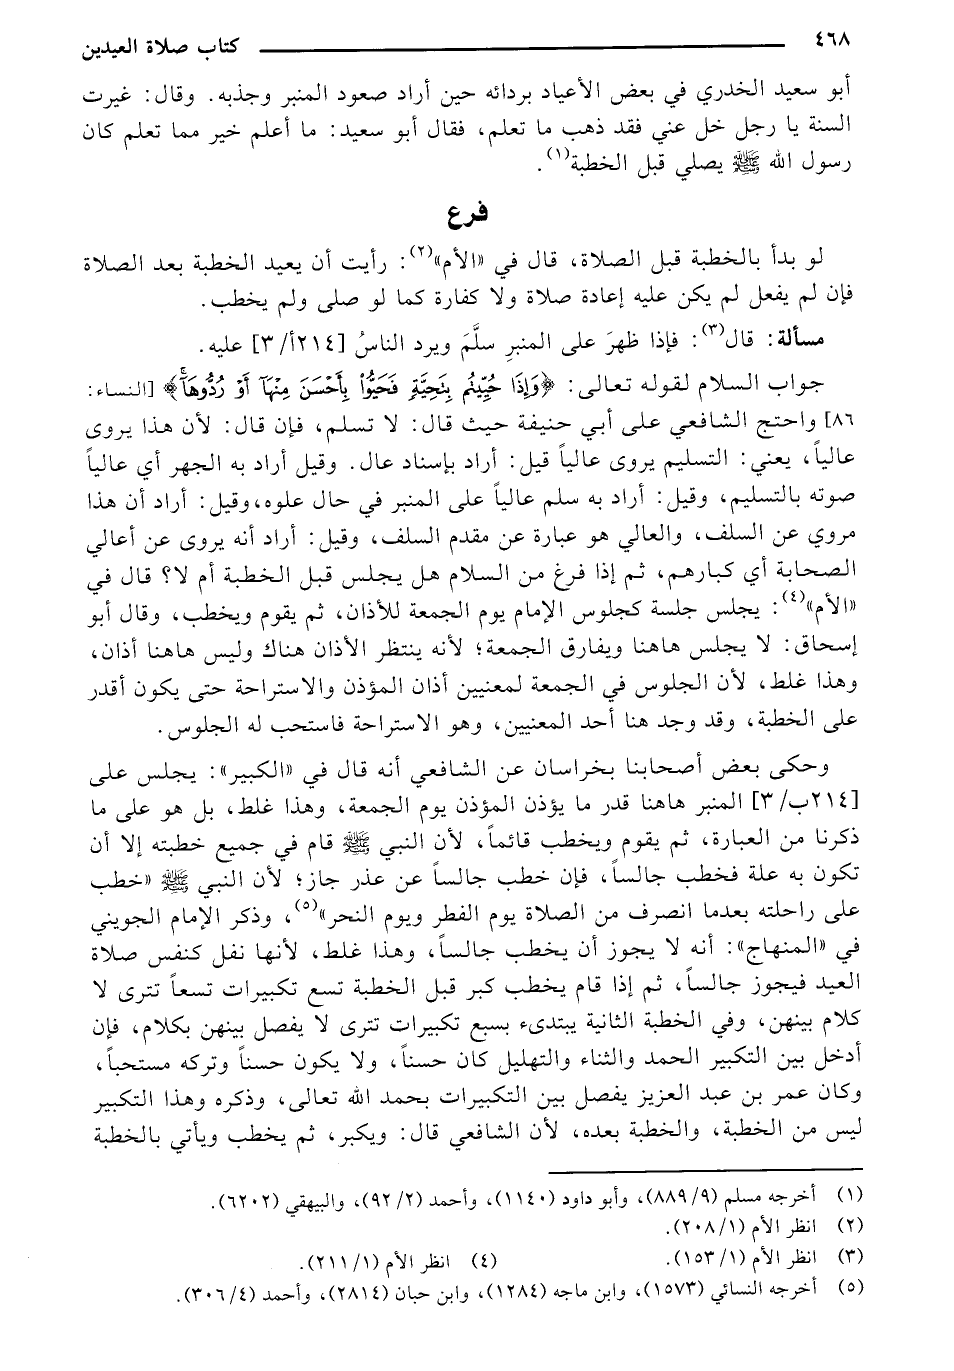 ٤٦٨ كتاب صلاة العيدين
أبو سعيد الخدري في بعض الأعياد بردائه حين أراد صعود المنبر وجذبه. وقال: غيرت
السنة يا رجل خل عني فقد ذهب ما تعلم، فقال أبو سعيد: ما أعلم خير مما تعلم كان
رسول الله ﷺ يصلي قبل الخطبة(١).
فرع
لو بدأ بالخطبة قبل الصلاة، قال في «الأم»(٢): رأيت أن يعيد الخطبة بعد الصلاة
فإن لم يفعل لم يكن عليه إعادة صلاة ولا كفارة كما لو صلى ولم يخطب.
مسألة: قال(٣): فإذا ظهرَ على المنبرِ سلَّمَ ويرد الناسُ [٢١٤أ/ ٣] عليه.
جواب السلام لقوله تعالى: ﴿وَإِذَا حُيِّيتُم بِتَحِيَّةٍ فَحَيُّوا بِأَحْسَنَ مِنْهَآ أَوْ رُدُّوهَآ﴾ [النساء:
٨٦] واحتج الشافعي على أبي حنيفة حيث قال: لا تسلم، فإن قال: لأن هذا يروى
عالياً، يعني: التسليم يروى عالياً قيل: أراد بإسناد عال. وقيل أراد به الجهر أي عالياً
صوته بالتسليم، وقيل: أراد به سلم عالياً على المنبر في حال علوه، وقيل: أراد أن هذا
مروي عن السلف، والعالي هو عبارة عن مقدم السلف، وقيل: أراد أنه يروى عن أعالي
الصحابة أي كبارهم، ثم إذا فرغ من السلام هل يجلس قبل الخطبة أم لا؟ قال في
«الأم»(٤): يجلس جلسة كجلوس الإمام يوم الجمعة للأذان، ثم يقوم ويخطب، وقال أبو
إسحاق: لا يجلس هاهنا ويفارق الجمعة؛ لأنه ينتظر الأذان هناك وليس هاهنا أذان،
وهذا غلط، لأن الجلوس في الجمعة لمعنيين أذان المؤذن والاستراحة حتى يكون أقدر
على الخطبة، وقد وجد هنا أحد المعنيين، وهو الاستراحة فاستحب له الجلوس.
وحكى بعض أصحابنا بخراسان عن الشافعي أنه قال في «الكبير»: يجلس على
[٢١٤ب/ ٣] المنبر هاهنا قدر ما يؤذن المؤذن يوم الجمعة، وهذا غلط، بل هو على ما
ذكرنا من العبارة، ثم يقوم ويخطب قائماً، لأن النبي ﷺ قام في جميع خطبته إلا أن
تكون به علة فخطب جالساً، فإن خطب جالساً عن عذر جاز؛ لأن النبي ﷺ «خطب
على راحلته بعدما انصرف من الصلاة يوم الفطر ويوم النحر»(٥)، وذكر الإمام الجويني
في «المنهاج»: أنه لا يجوز أن يخطب جالساً، وهذا غلط، لأنها نفل كنفس صلاة
العيد فيجوز جالساً، ثم إذا قام يخطب كبر قبل الخطبة تسع تكبيرات تسعاً تترى لا
كلام بينهن، وفي الخطبة الثانية يبتدىء بسبع تكبيرات تترى لا يفصل بينهن بكلام، فإن
أدخل بين التكبير الحمد والثناء والتهليل كان حسناً، ولا يكون حسناً وتركه مستحباً،
وكان عمر بن عبد العزيز يفصل بين التكبيرات بحمد الله تعالى، وذكره وهذا التكبير
ليس من الخطبة، والخطبة بعده، لأن الشافعي قال: ويكبر، ثم يخطب ويأتي بالخطبة
(١) أخرجه مسلم (٩/ ٨٨٩)، وأبو داود (١١٤٠)، وأحمد (٢/ ٩٢)، والبيهقي (٦٢٠٢).
(٢) انظر الأم (١/ ٢٠٨).
(٣) انظر الأم (١/ ١٥٣). (٤) انظر الأم (١/ ٢١١).
(٥) أخرجه النسائي (١٥٧٣)، وابن ماجه (١٢٨٤)، وابن حبان (٢٨١٤)، وأحمد (٤/ ٣٠٦).